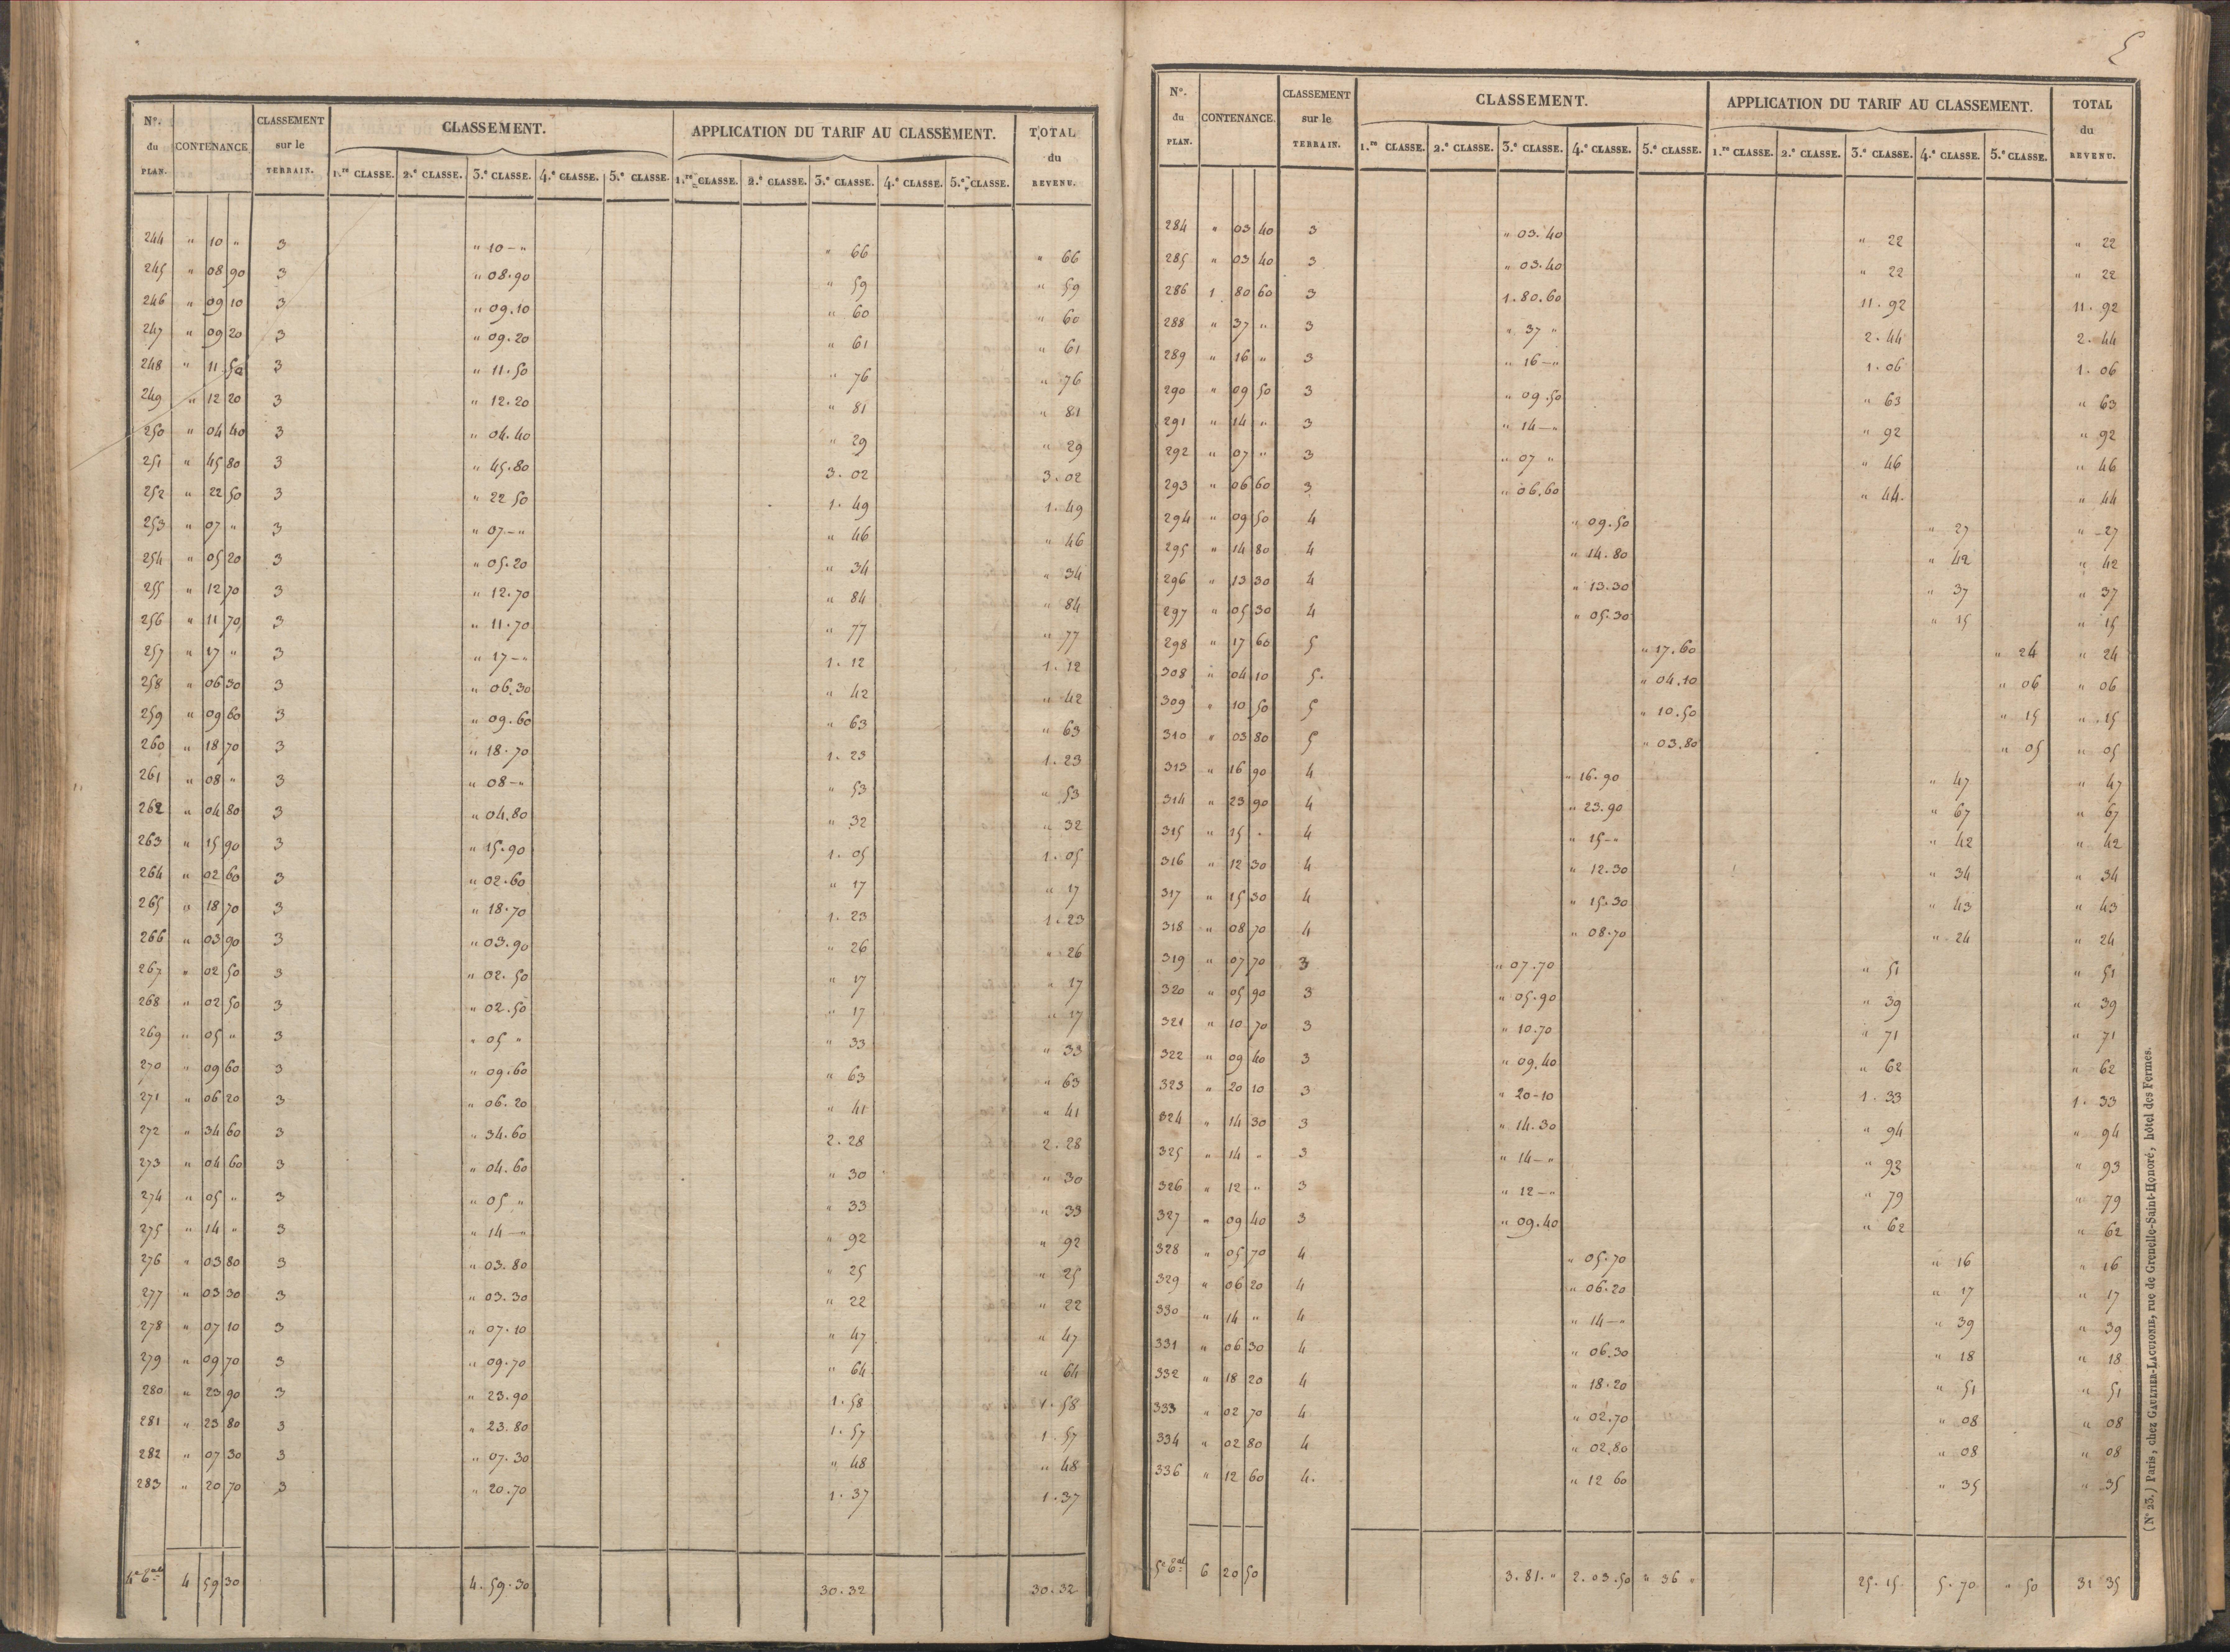 N.º du PLAN. CONTENANCE CLASSEMENT sur le TERRAIN. CLASSEMENT. APPLICATION DU TARIF AU CLASSEMENT. TOTAL du REVENU.
1.re CLASSE. 2.e CLASSE. 3.e CLASSE. 4.e CLASSE. 5.e CLASSE. 1.re CLASSE. 2.e CLASSE. 3.e CLASSE. 4.e CLASSE. 5.e CLASSE.
244 " 10 " 3 " 10 - " " 66 " 66
245 " 08 90 3 " 08.90 " 59 " 59
246 " 09 10 3 " 09.10 " 60 " 60
247 " 09 20 3 " 09.20 " 61 " 61
248 " 11 50 3 " 11.50 " 76 " 76
249 " 12 20 3 " 12.20 " 81 " 81
250 " 04 40 3 " 04.40 " 29 " 29
251 " 45 80 3 " 45.80 3.02 3.02
252 " 22 50 3 " 22 50 1.49 1.49
253 " 07 " 3 " 07 - " " 46 " 46
254 " 05 20 3 " 05.20 " 34 " 34
255 " 12 70 3 " 12.70 " 84 " 84
256 " 11 70 3 " 11.70 " 77 " 77
257 " 17 " 3 " 17 - " 1.12 1.12
258 " 06 30 3 " 06.30 " 42 " 42
259 " 09 60 3 " 09.60 " 63 " 63
260 " 18 70 3 " 18.70 1.23 1.23
261 " 08 " 3 " 08 - " " 53 " 53
262 " 04 80 3 " 04.80 " 32 " 32
263 " 15 90 3 " 15.90 1.05 1.05
264 " 02 60 3 " 02.60 " 17 " 17
265 " 18 70 3 " 18.70 1.23 1.23
266 " 03 90 3 " 03.90 " 26 " 26
267 " 02 50 3 " 02.50 " 17 " 17
268 " 02 50 3 " 02.50 " 17 " 17
269 " 05 " 3 " 05 " " 33 " 33
270 " 09 60 3 " 09.60 " 63 " 63
271 " 06 20 3 " 06.20 " 41 " 41
272 " 34 60 3 " 34.60 2.28 2.28
273 " 04 60 3 " 04.60 " 30 " 30
274 " 05 " 3 " 05 " " 33 " 33
275 " 14 " 3 " 14 - " " 92 " 92
276 " 03 80 3 " 03.80 " 25 " 25
277 " 03 30 3 " 03.30 " 22 " 22
278 " 07 10 3 " 07.10 " 47 " 47
279 " 09 70 3 " 09.70 " 64 " 64
280 " 23 90 3 " 23.90 1.58 1.58
281 " 23 80 3 " 23.80 1.57 1.57
282 " 07 30 3 " 07.30 " 48 " 48
283 " 20 70 3 " 20.70 1.37 1.37
4 59 30 4.59.30 30.32 30.32
5
N.º du PLAN. CONTENANCE. CLASSEMENT sur le TERRAIN. CLASSEMENT. APPLICATION DU TARIF AU CLASSEMENT. TOTAL du REVENU.
1.re CLASSE. 2.e CLASSE. 3.e CLASSE. 4.e CLASSE. 5.e CLASSE. 1.re CLASSE. 2.e CLASSE. 3.e CLASSE. 4.e CLASSE. 5.e CLASSE.
284 " 03 40 3 " 03.40 " 22 " 22
285 " 03 40 3 " 03.40 " 22 " 22
286 1 80 60 3 1.80.60 11.92 11.92
288 " 37 " 3 " 37 " 2.44 2.44
289 " 16 " 3 " 16 - " 1.06 1.06
290 " 09 50 3 " 09.50 " 63 " 63
291 " 14 " 3 " 14 - " " 92 " 92
292 " 07 " 3 " 07 " " 46 " 46
293 " 06 60 3 " 06.60 " 44. " 44
294 " 09 50 4 " 09.50 " 27 " 27
295 " 14 80 4 " 14.80 " 42 " 42
296 " 13 30 4 " 13.30 " 37 " 37
297 " 05 30 4 " 05.30 " 15 " 15
298 " 17 60 5 " 17.60 " 24 " 24
308 " 04 10 5. " 04.10 " 06 " 06
309 " 10 50 5 " 10.50 " 15 " 15
310 " 03 80 5 " 03.80 " 05 " 05
313 " 16 90 4 " 16.90 " 47 " 47
314 " 23 90 4 " 23.90 " 67 " 67
315 " 15 " 4 " 15 - " " 42 " 42
316 " 12 30 4 " 12.30 " 34 " 34
317 " 15 30 4 " 15.30 " 43 " 43
318 " 08 70 4 " 08.70 " 24 " 24
319 " 07 70 3 " 07.70 " 51 " 51
320 " 05 90 3 " 05.90 " 39 " 39
321 " 10 70 3 " 10.70 " 71 " 71
322 " 09 40 3 " 09.40 " 62 " 62
323 " 20 10 3 " 20-10 1.33 1.33
324 " 14 30 3 " 14.30 " 94 " 94
325 " 14 " 3 " 14 - " " 93 " 93
326 " 12 " 3 " 12 - " " 79 " 79
327 " 09 40 3 " 09.40 " 62 " 62
328 " 05 70 4 " 05.70 " 16 " 16
329 " 06 20 4 " 06.20 " 17 " 17
330 " 14 " 4 " 14 - " " 39 " 39
331 " 06 30 4 " 06.30 " 18 " 18
332 " 18 20 4 " 18.20 " 51 " 51
333 " 02 70 4 " 02.70 " 08 " 08
334 " 02 80 4 " 02.80 " 08 " 08
336 " 12 60 4. " 12 60 " 35 " 35
6 20 50 3.81. " 2.03.50 " 36 " 25.15 5.70 " 50 31 35
(N° 23.) Paris, chez GAULTIER-LAGUIONIE, rue de Grenelle-Saint-Honoré, hôtel des Fermes.